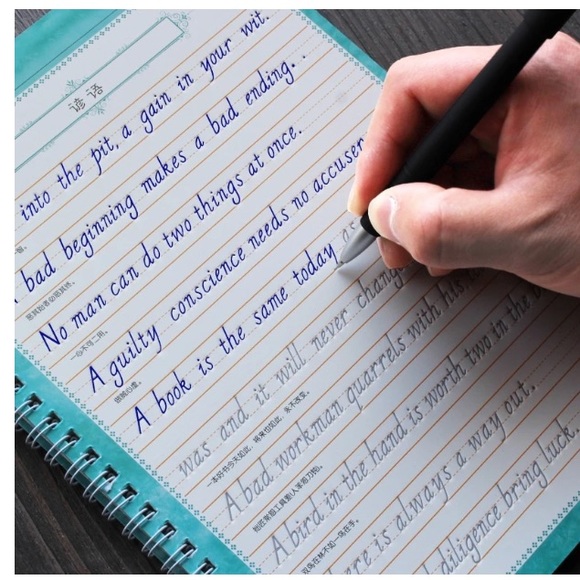 谚语
into the pit, a gain in your wit.
bad beginning makes a bad ending.
No man can do two things at once.
一心不可二用。
A guilty conscience needs no accuser
做贼心虚。
A book is the same today as
was and it will never chang
一本好书今天如此，将来也如此，永不改变。
A bad workman quarrels with his
拙匠常怨工具差(人笨怨刀钝)。
A bird in the hand is worth two in the
双鸟在林不如一鸟在手。
ere is always a way out.
diligence bring luck.